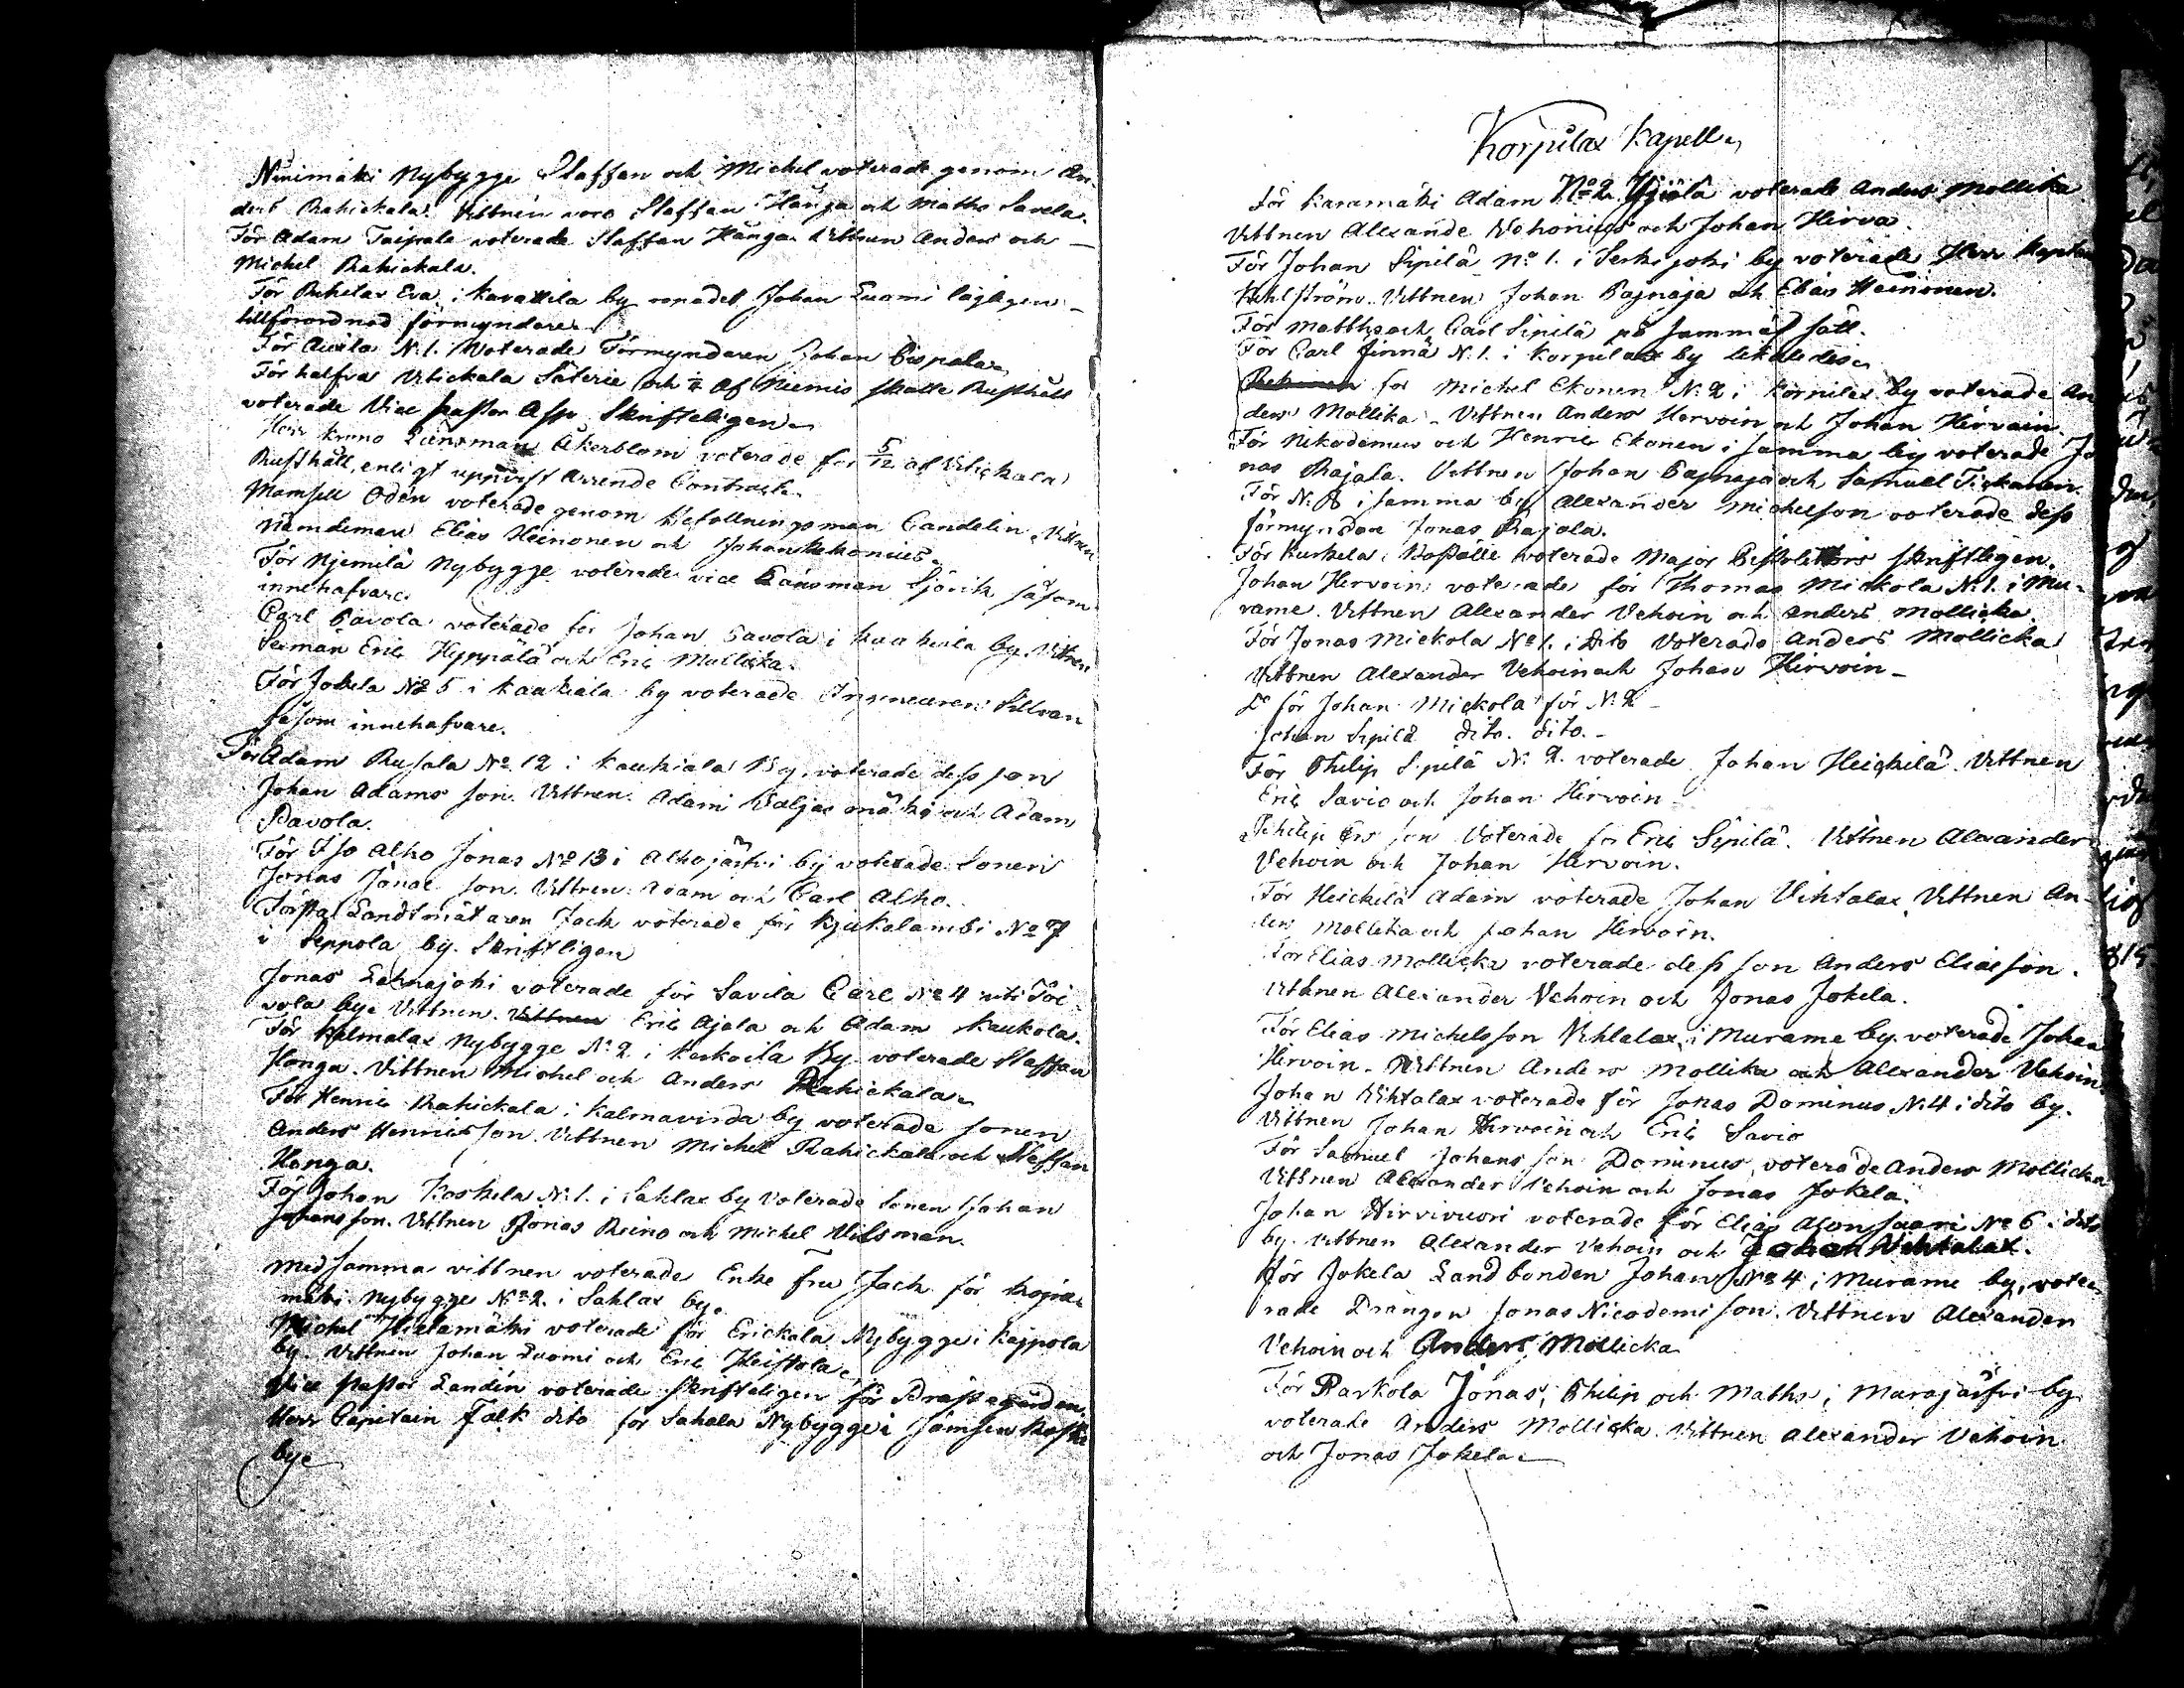 Niinimäki Nybygge Staffan och Michel voterade genom An-
ders Rahickala. Vittnen voro Staffan Hånga och Maths Savela.
För Adam Taipale voterade Staffan Hånga. Vittnen Anders och
Michel Rahickala.
För Eva i Karattila by Johan Luomi lagligen
tillförordnad förmyndare.
För Auvila N:1. Voterade Förmyndaren Johan Cispala.
För halfva Vitickala Säterie och af Niemis skatte Rusthåll
voterade Vice pastor Asp Skrifteligen.
Herr krono Länsman Åkerblom voterade för 5/12 af Vitickala
Rusthåll, enligt uppvist Arrende Contract.
Mamsell Odén voterade genom Befallningsman Candelin. Vittnen
Nämdeman Elias Heinonen och Johan Vehonius.
För Njemilä Nybygge voterade vice Länsman Sjövik såsom
innehafvare.
Carl Pavola voterade för Johan Pavola i by. Vittnen
Seman Eric Hyppölä och Eric Mollicka.
För Jokela No 5 i Kaukiala by voterade Ingeneuren Sillvan
såsom innehafvare.
För Adam Rusala No 12 i Kaukiala By, voterade dess son
Johan Adams son. Vittnen Adam Valjas mäki och Adam
Pavola.
För Iso Alho Jonas No 13 i Alhojärfvi by voterade Sonen
Jonas Jonas son. Vittnen Adam och Carl Alho.
Första Landtmätaren Jack voterade för Kjukalambi No 7
i Seppola by. Skriftligen
Jonas Lahnajoki voterade för Savila Carl No 4 uti Toi-
vola by. Vittnen Vittnen Eric Ajala och Adam Kaukola.
För Kalmalax Nybygge No 2 i Keskoila By voterade Staffan
Honga. Vittnen Michel och Anders Rahickala.
För Henric Rahickala i Kalmavirda by voterade sonen
Anders Henrics son. Vittnen Michel Rahickala och Staffan
Honga.
För Johan Koskela N:1. i Sahlax by voterade Sonen Johan
Johans son. Vittnen Jonas Reino och Michel Vilsman.
Med samma vittnen voterade Enke Fru Jack för
mäki Nybygge No 2. i Sahlax by.
Michel Hietamäki voterade för Erickala Nybygge i Kappola
by. Vittnen Johan Luomi och Eric Heistola.
Vice pastor Landén voterade skrifteligen för Prästegården.
Herr Capitain Falk dito för Sahala Nybygge i Jämsen Koski
by.
Korpilax Kapell
För Karamäki Adam No 2. voterade Anders Mollika
Vittnen Alexande Vehonius och Johan Hirva.
För Johan Sipilä No 1. i Serkijoki by voterade Herr Kapten
Kihlström. Vittnen Johan Pajnaja och Elias Heinonen.
För Matths och Carl Sipilä på samma sätt.
För Carl Jinnä N:1. i Korpilax by likaledes
för Michel Ekonen N:2 i Korpilax by voterade An-
ders Mollika. Vittnen Anders Hervoin och Johan Hirvoin
För Nikodemus och Henric Ekonen i samma by voterade Jo-
nas Rajala. Vittnen Johan Pajnaja och Samuel Tickanen.
För N:8 i samma by Alexander Michelson voterade dess
förmyndare Jonas Rajala.
För Kurkela Boställe voterade Major skriftligen.
Johan Hervoin voterade för Thomas Mickola N:1. i Mu-
rame. Vittnen Alexander Vehoin och Anders Mollicka
För Jonas Mickola No 1. i dito Voterade Anders Mollicka
Vittnen Alexander Vehoin och Johan Hirvoin
Do för Johan Mickola för N:2
Johan Sipilä dito. dito.
För Philip Sipilä N:2. voterade Johan Heickilä. Vittnen
Eric Savio och Johan Hirvoin
Philip Ers son Voterade för Eric Sipilä. Vittnen Alexander
Vehoin och Johan Hervoin.
För Heickilä Adam voterade Johan Vihtalax. Vittnen An-
ders Mollika och Johan Hirvoin.
För Elias Mollicka voterade dess son Anders Eliasson.
Vittnen Alexander Vehoin och Jonas Jokela.
För Elias Michelsson Vihtalax i Murame by voterade Johan
Hirvoin. Vittnen Anders Mollika och Alexander Vehoin.
Johan Vihtalax voterade för Jonas Dominus N:4 i dito by.
Vittnen Johan Hirvoin och Eric Savio
För Samuel Johans son Dominus, voterade Anders Mollicka
Vittnen Alexander Vehoin och Jonas Jokela.
Johan Hirvivuori voterade för Elias No 6 i dito
by. Vittnen Alexander Vehoin och Johan Vihtalax.
För Jokela Landbonden Johan No 4 i Murame by, vote-
rade Drängen Jonas Nicodemi son. Vittnen Alexander
Vehoin och Anders Mollicka
För Parkola Jonas, Philip och Maths i Murajärfvi by
voterade Anders Mollicka. Vittnen Alexander Vehoin
och Jonas Jokela